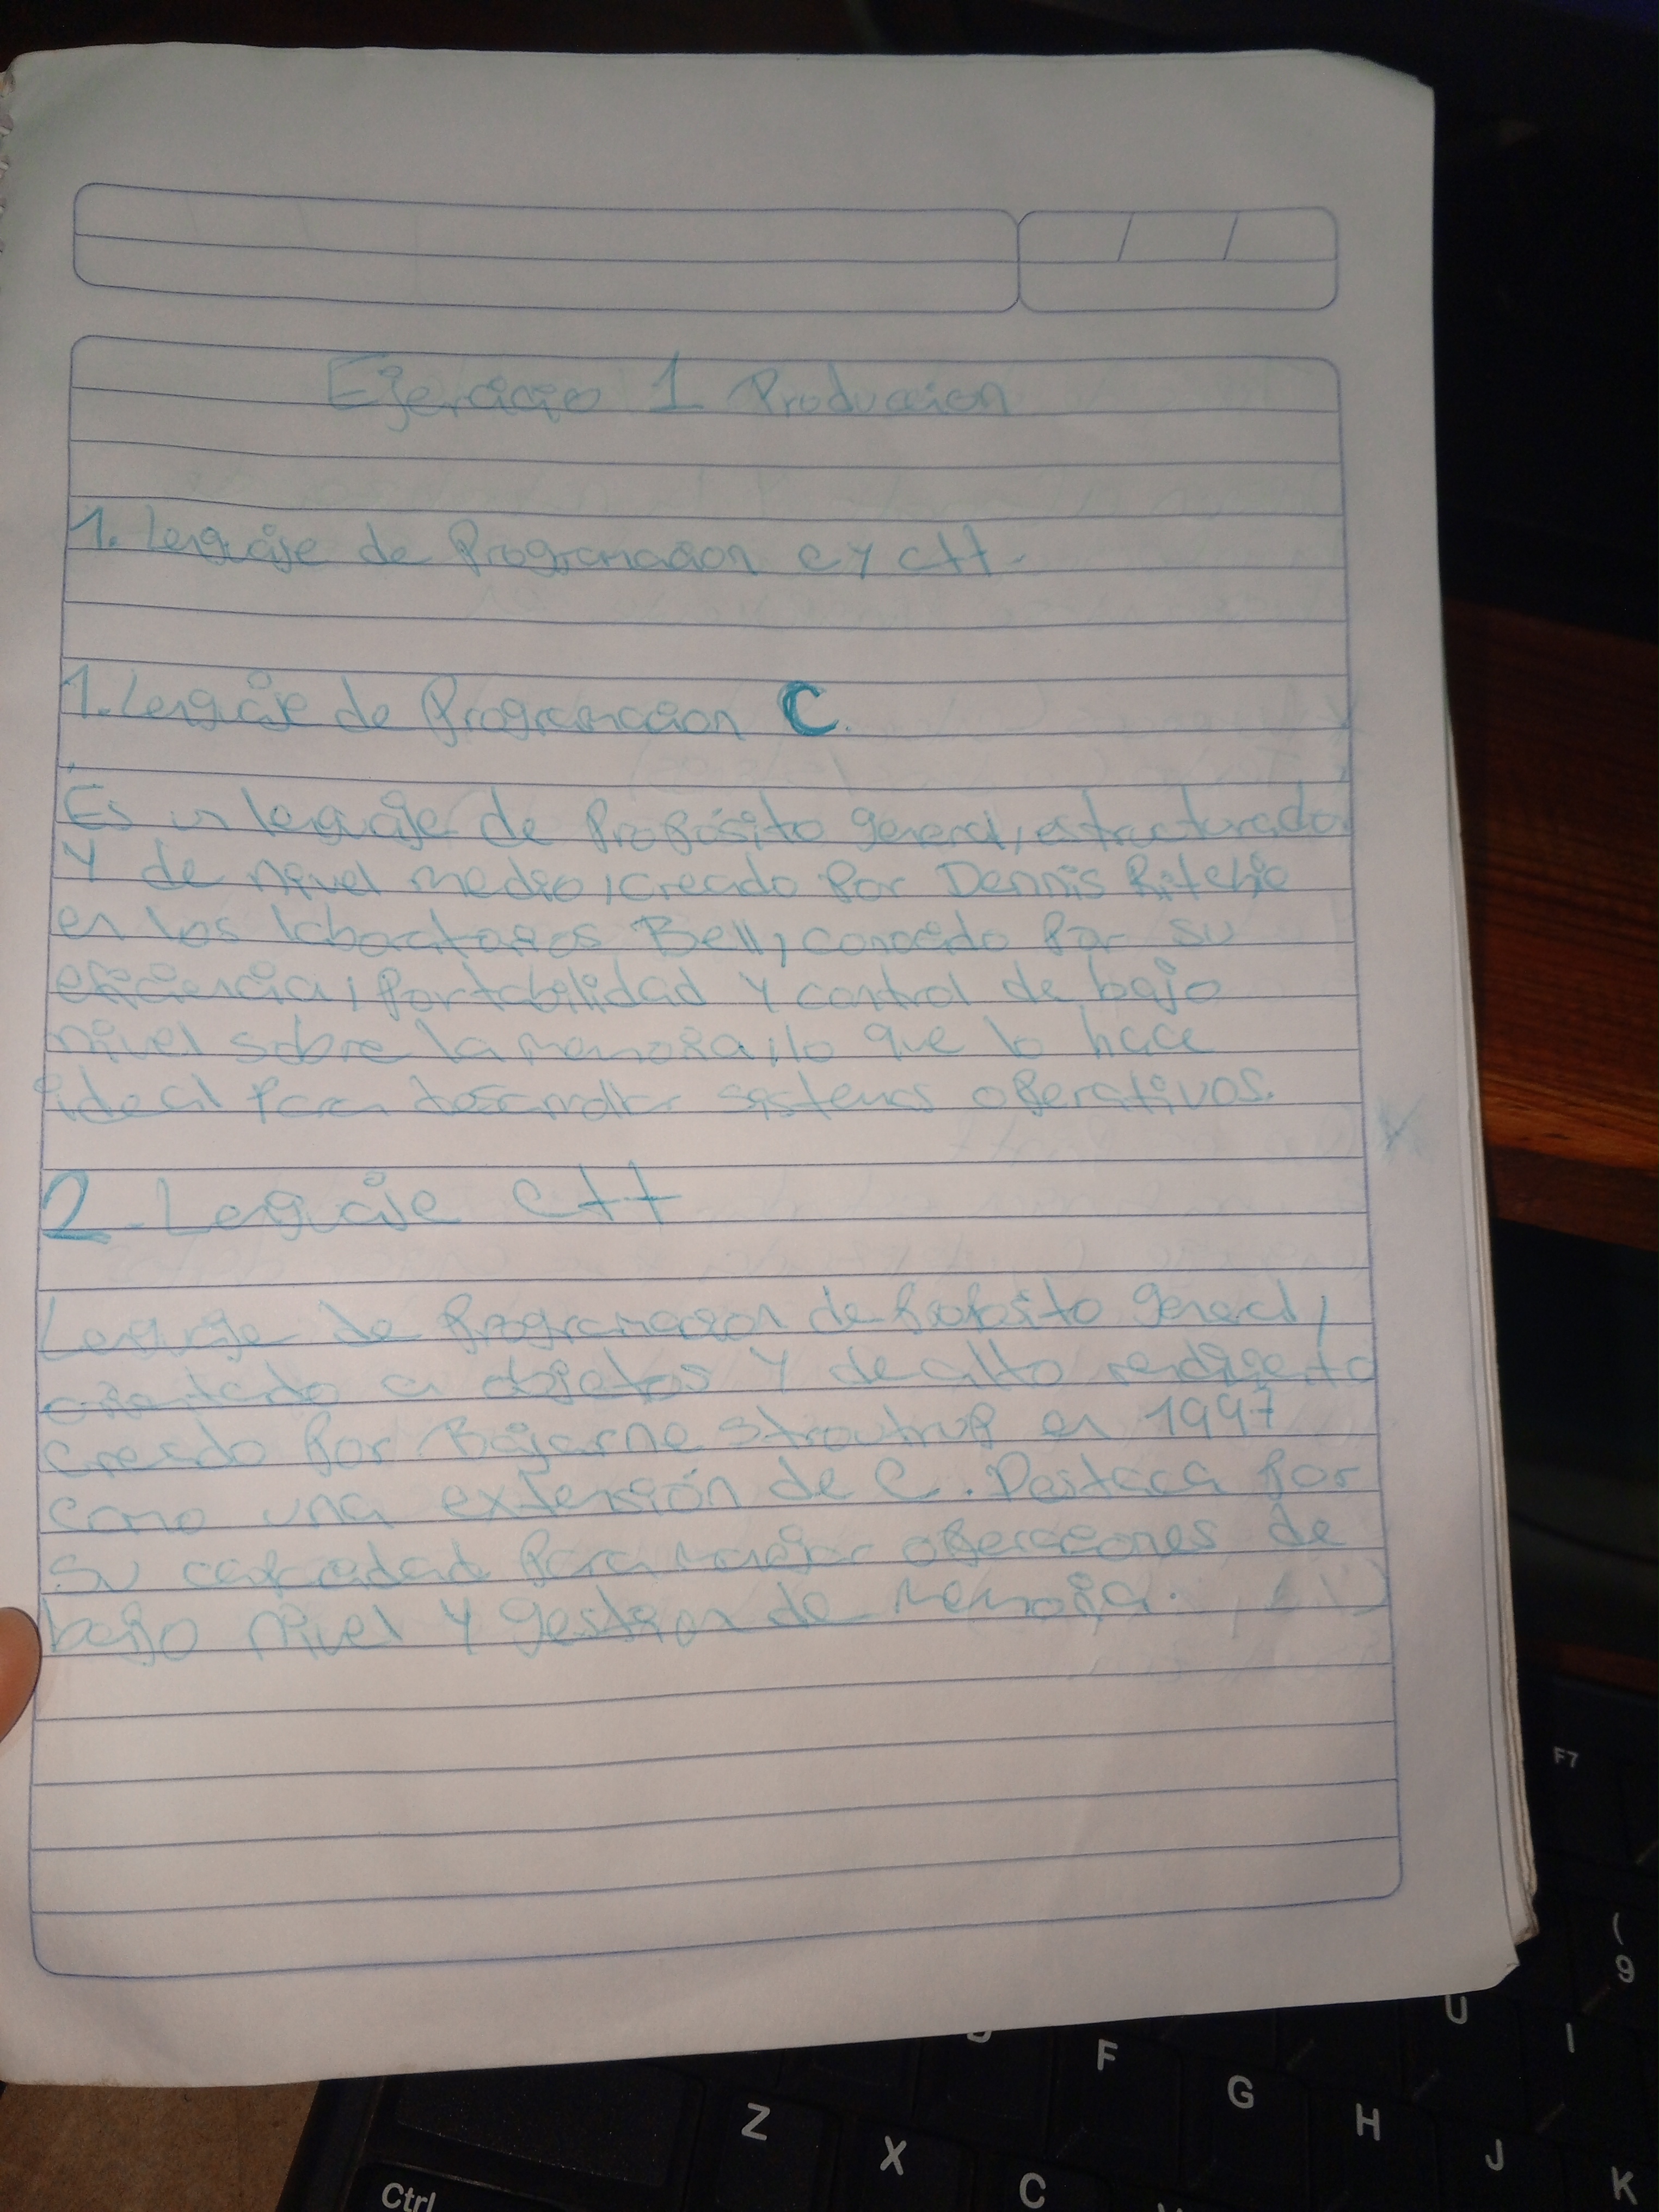 Ejercicio 1 Produccion
1. Lenguaje de Programacion C y C++.
1. Lenguaje de Programacion C.
Es un lenguaje de Propósito general, estructurado
y de nivel medio, creado por Dennis Ritchie
en los laboratorios Bell, conocido por su
eficiencia, Portabilidad y control de bajo
nivel sobre la memoria, lo que lo hace
ideal para desarrollar sistemas operativos.
2. Lenguaje C++
Lenguaje de Programacion de Proposito general,
orientado a objetos y de alto
creado por Bjarne en 1997
como una extensión de C. Destaca por
su capacidad para manejar operaciones de
bajo nivel y gestion de memoria.
F7
( 9
U I
F G H J K
Z X C
Ctrl